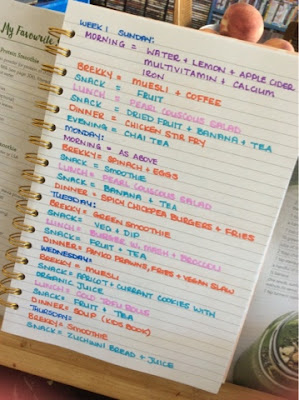 My Favourite
WEEK 1 SUNDAY:
MORNING = WATER + LEMON + APPLE CIDER
MULTIVITAMIN + CALCIUM
IRON
BREKKY = MUESLI + COFFEE
SNACK = FRUIT
LUNCH = PEARL COUSCOUS SALAD
SNACK = DRIED FRUIT + BANANA + TEA
DINNER = CHICKEN STIR FRY
EVENING = CHAI TEA
MONDAY:
MORNING = AS ABOVE
BREKKY = SPINACH + EGGS
SNACK = SMOOTHIE
LUNCH = PEARL COUSCOUS SALAD
SNACK = BANANA + TEA
DINNER = SPICY CHICKPEA BURGERS + FRIES
TUESDAY:
BREKKY = GREEN SMOOTHIE
SNACK = VEG + DIP
LUNCH = BURGER W. MASH + BROCCOLI
SNACK = FRUIT + TEA
DINNER = PANKO PRAWNS, FRIES + VEGAN SLAW
WEDNESDAY:
BREKKY = MUESLI
SNACK = APRICOT + CURRANT COOKIES WITH
ORGANIC JUICE
LUNCH = COLD TOFU ROLLS
SNACK = FRUIT + TEA
DINNER = SOUP (KIDS BOOK)
THURSDAY:
BREKKY = SMOOTHIE
SNACK = ZUCHINNI BREAD + JUICE